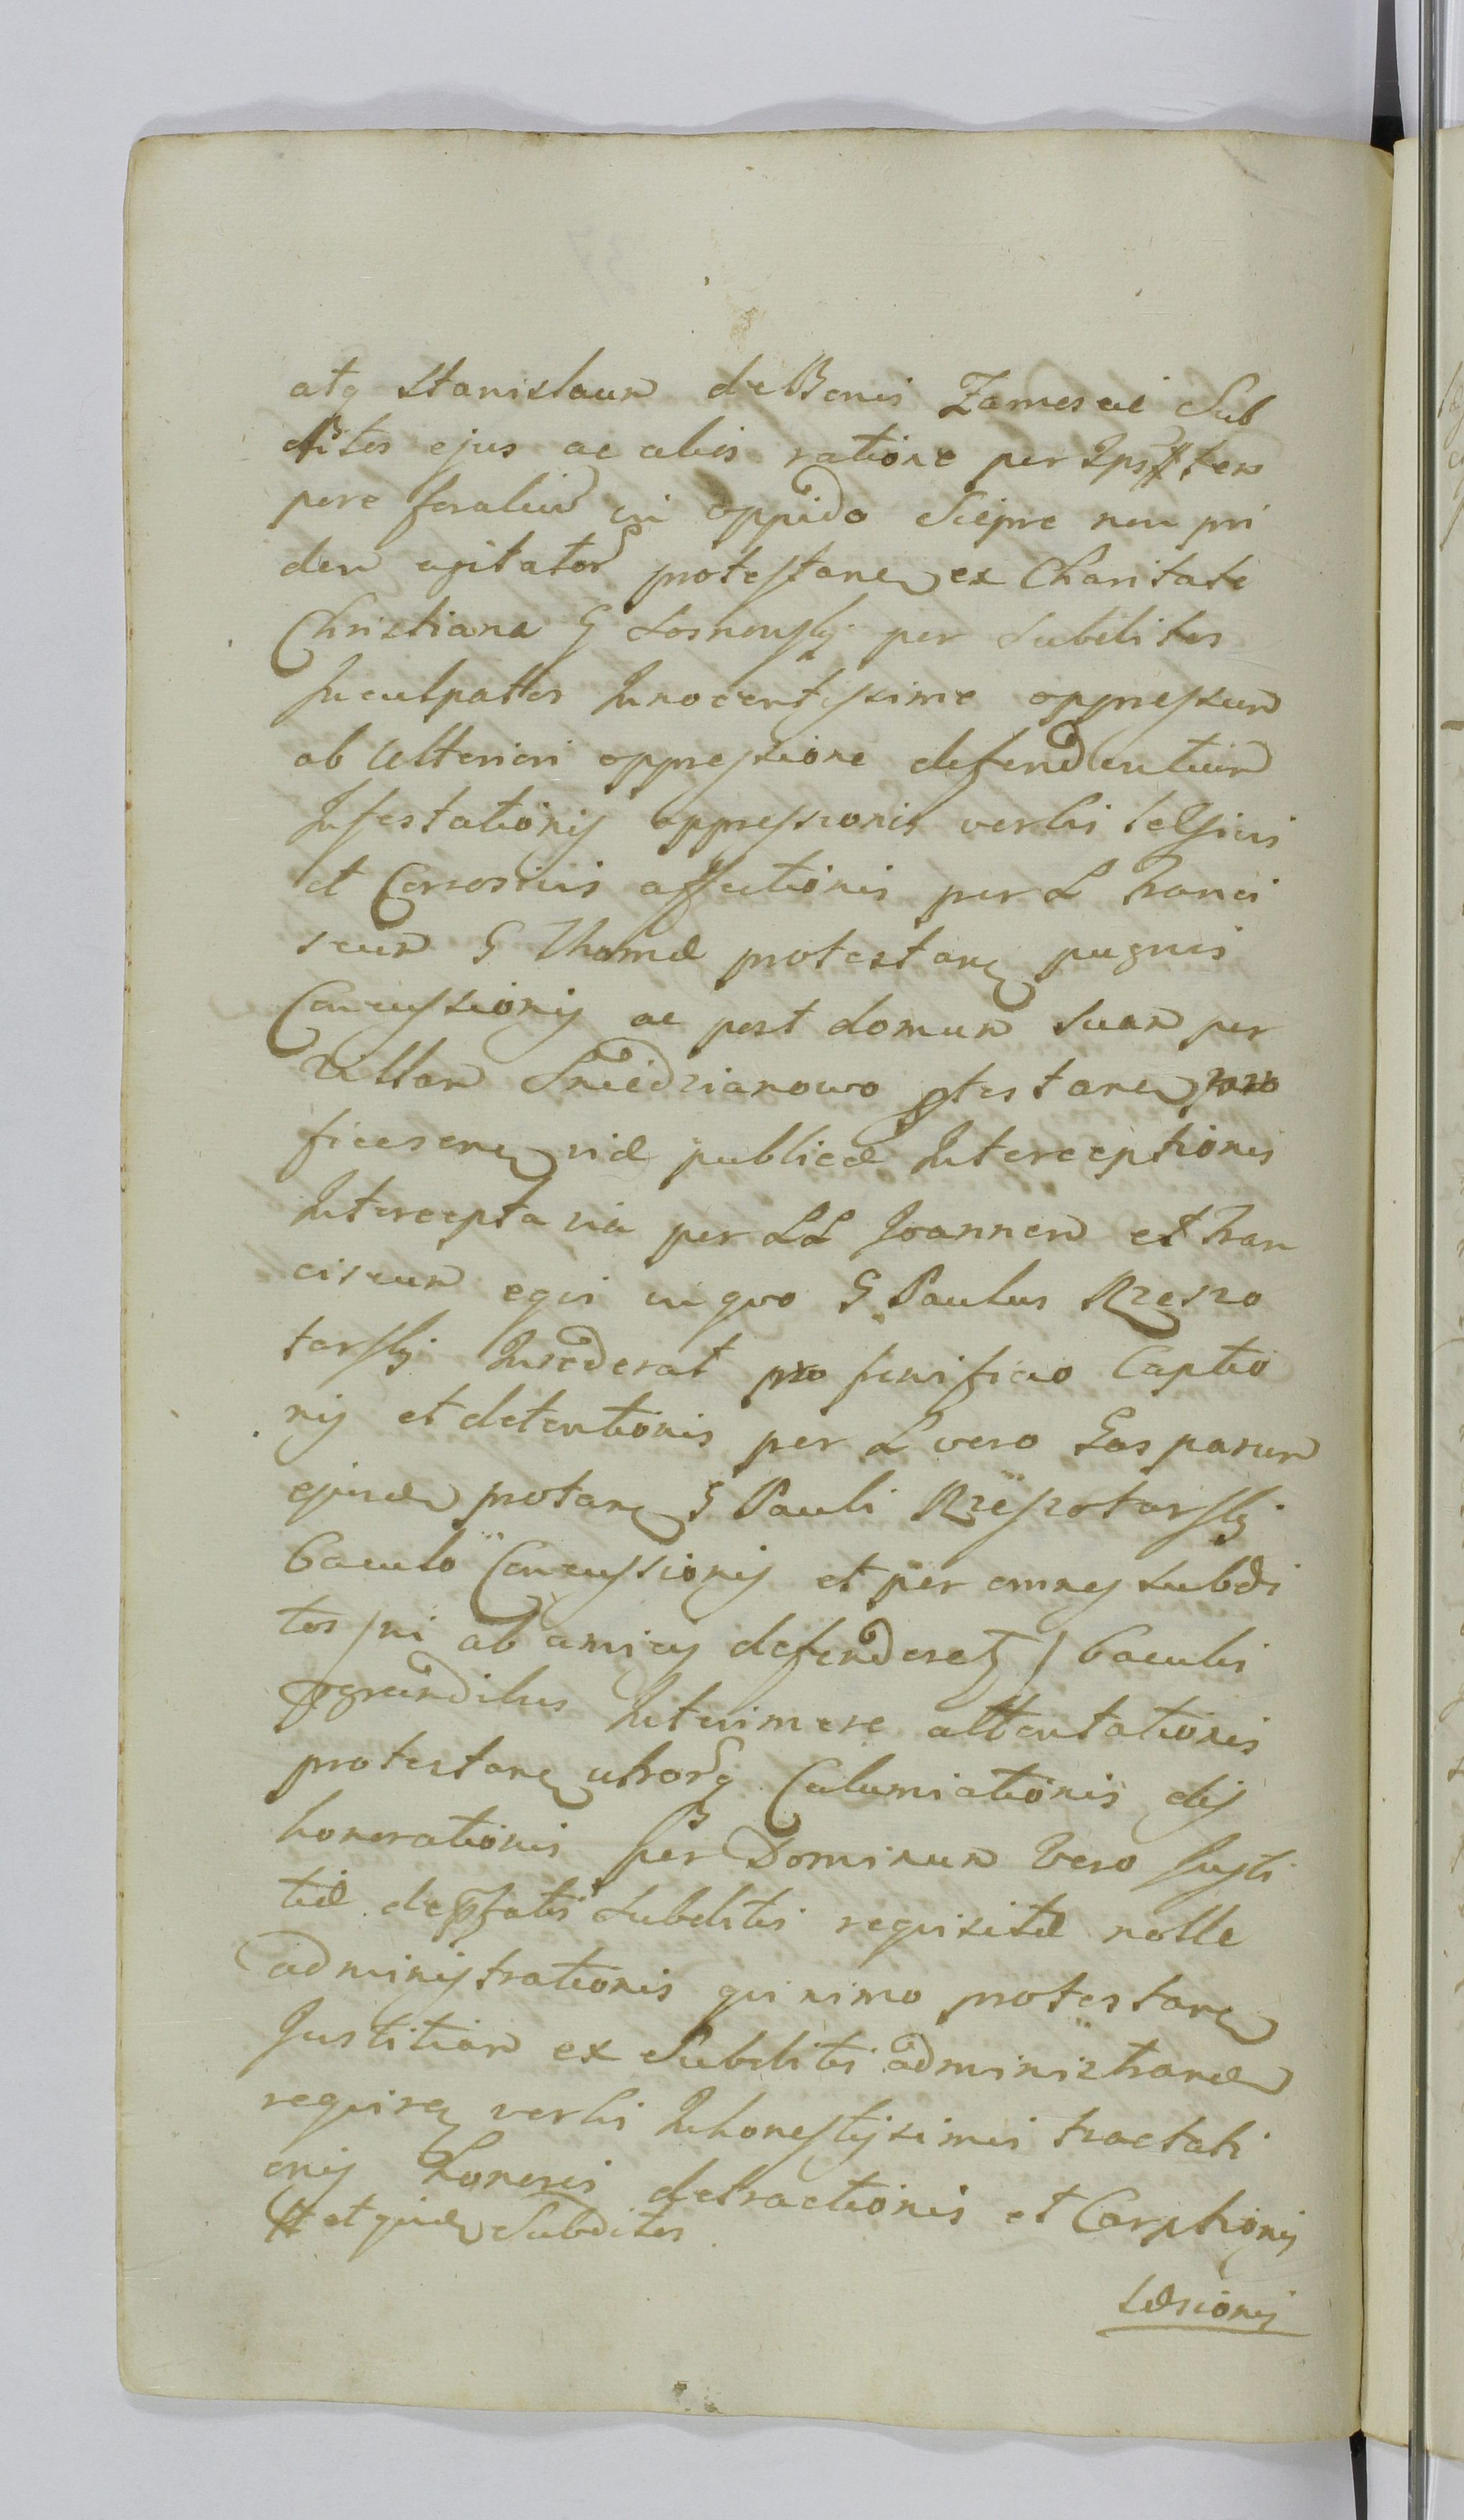 atq Stanislaum de Bonis Zamoscie Sub
ditos ejus ac alios ratione per Ips # tem
pore foralium in oppido Sierpc non pri
dem agitator protestanem ex Charitate
Christiana G Losnowsky per Subditos
Inculpattos Innocentissime oppressum
ab ulteriori oppressione defendentium
Infestationis oppressionis verbis
et Corrosivis affectionis per L Franci
scum G Thomæ protestane pugnis
Concussionis ac post domum suam per
Villam Sniedzianowo ptestanem pro
ficiscene viæ publicæ Interceptionis
Intercepta via per LL Joannem et Fran
ciscum equi in quo G Paulus Rzeszo
tarsky Insederat pro fenificio Captio
nis et detentionis per L vero Gasparum
ejusdem protane G Pauli Rzeszotarsky
baculo Concussionis et per omnes subdi
tos / ni ab amicis defenderet / baculis
pgrandibus Interimere attentationis
protestane utrorq Calumiationis dis
honorationis per Dominum vero Justi
tiæ de Subditis requisitæ nolle
administrationis quinimo protestane
Justitiam ex Subditis administrandem
requiren verbis Inhonestissimis tractati
onis honoris detractionis et Carptionis
# et quidem Subditos
Læsionis